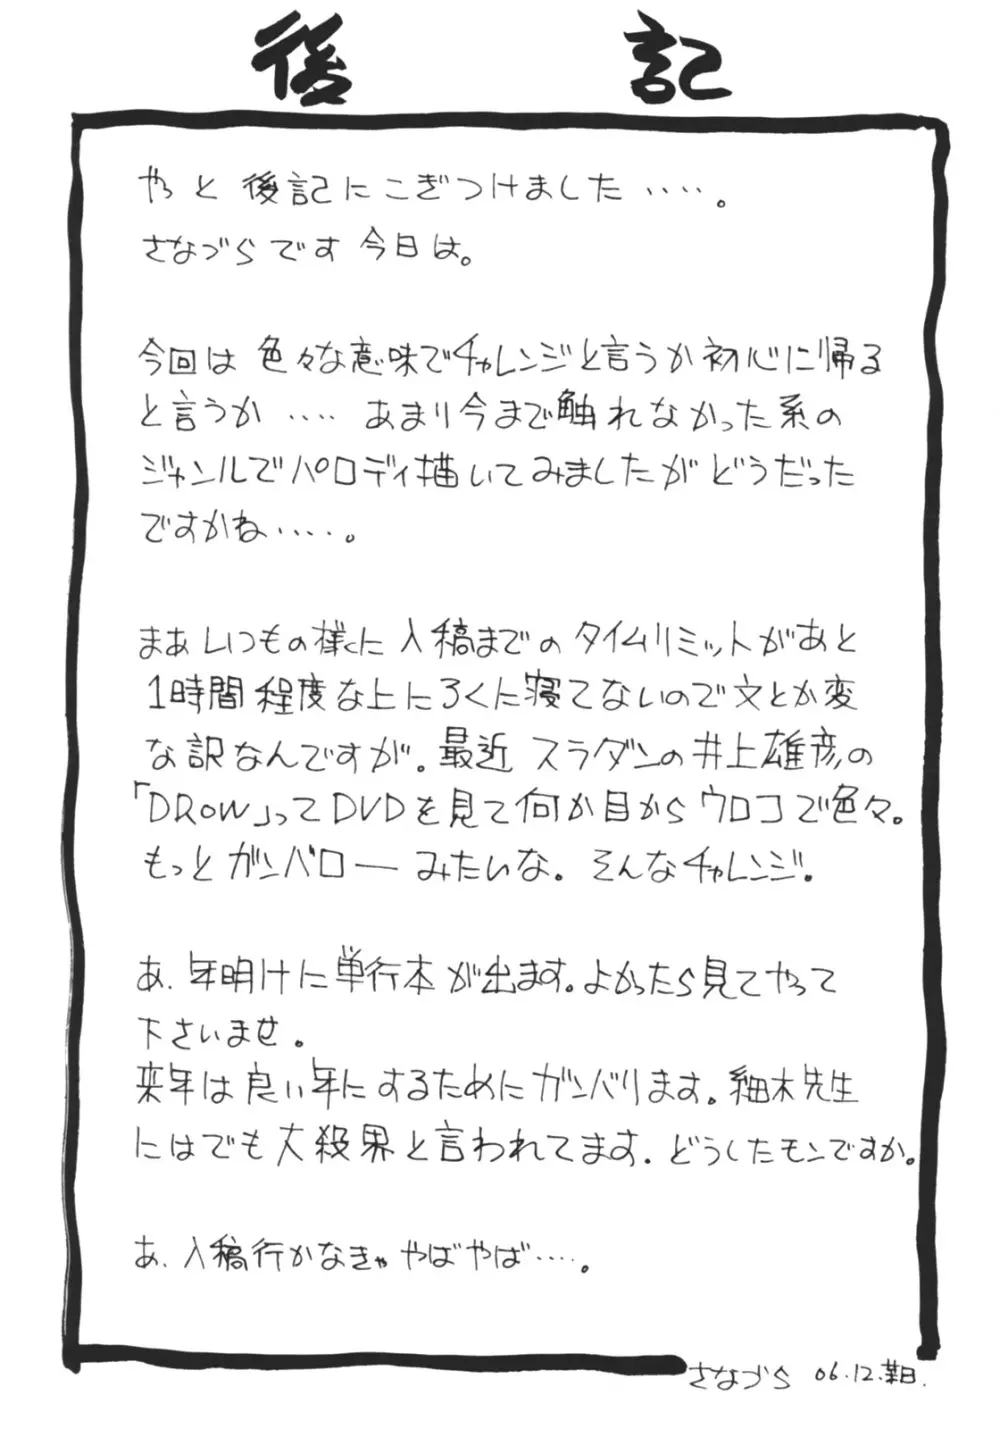 後記
やっと後記にこぎつけました‥‥。
さなづらです今日は。
今回は色々な意味でチャレンジと言うか初心に帰る
と言うか‥‥あまり今まで触れなかった系の
ジャンルでパロディ描いてみましたがどうだった
ですかね‥‥‥。
まあいつもの様に入稿までのタイムリミットがあと
1時間程度な上にろくに寝てないので文とか変
な訳なんですが。最近スラダンの井上雄彦の
「DROW」ってDVDを見て何か目からウロコで色々。
もっとガンバローみたいな。そんなチャレンジ。
あ、年明けに単行本が出ます。よかったら見てやって
下さいませ。
来年は良い年にするためにガンバります。細木先生
にはでも大殺界と言われてます。どうしたモンですか。
あ、入稿行かなきゃやばやば‥‥。
さなづら 06.12.